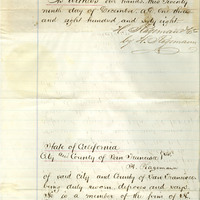 In witness our hands, this twenty
ninth day of December A.D. one thou
and eight hundred and sixty eight.
H. Hagemann & Co
by H. Hagemann
State of California
City and County of San Francisco } ss
H. Hagemann
of said City and County of San Francisco
being duly sworn, deposes and says
he is a member of the firm of H.